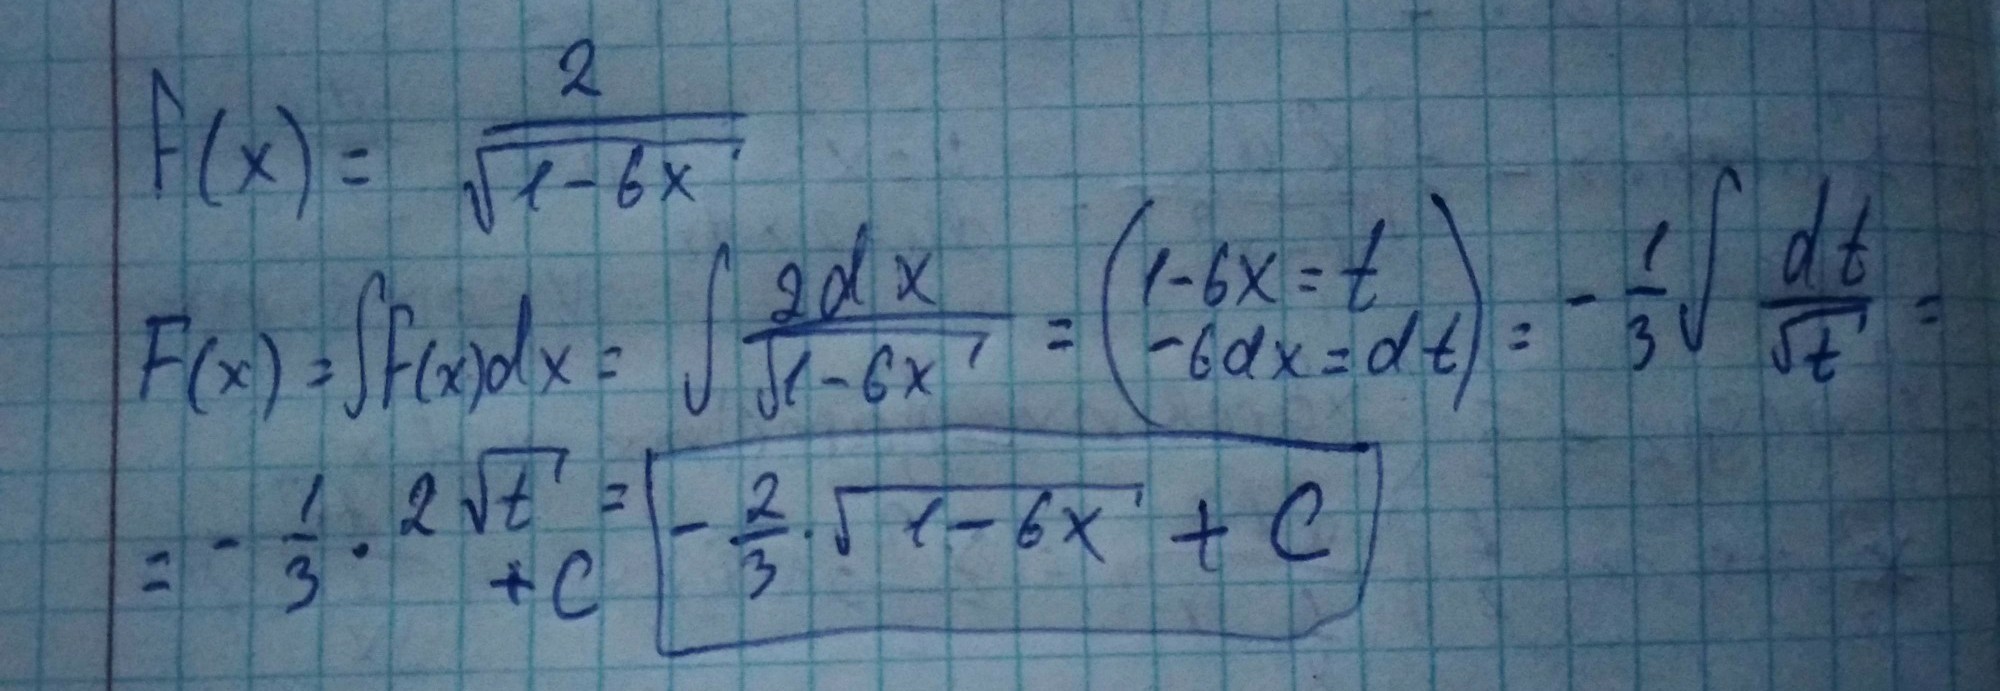 f(x) = 2/√(1-6x)
F(x) = ∫f(x)dx = ∫ 2dx/√(1-6x) = (1-6x=t -6dx=dt) = -1/3 ∫ dt/√t =
= -1/3 · 2√t + C = -2/3 · √(1-6x) + C